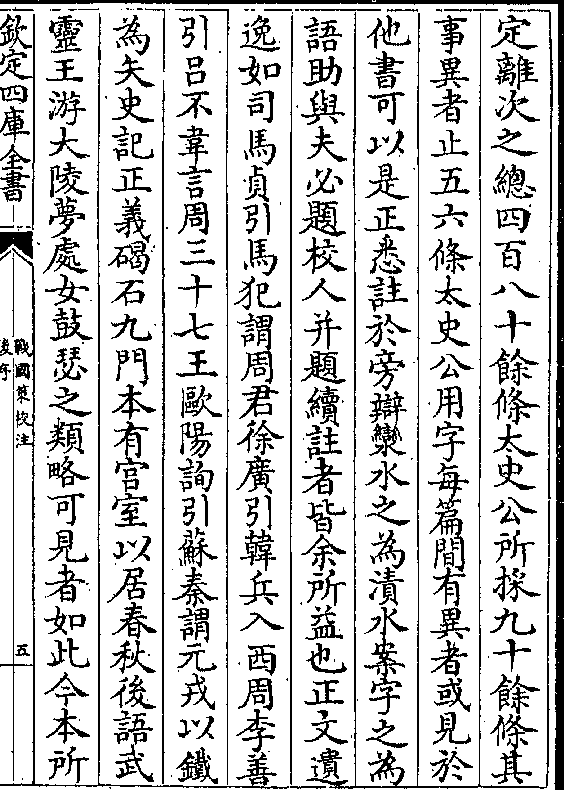 定離次之總四百八十餘條太史公所採九十餘條其
事異者止五六條太史公用字每篇間有異者或見於
他書可以是正悉註於旁辯灓水之為漬水案字之為
語助與夫必題校人并題續註者皆余所益也正文遺
逸如司馬貞引馬犯謂周君徐廣引韓兵入西周李善
引呂不韋言周三十七王歐陽詢引蘇秦謂元戎以鐵
為矢史記正義碣石九門本有宫室以居春秋後語武
靈王游大陵夢處女鼓瑟之類略可見者如此今本所
欽定四庫全書
戰國策校注
後序
五